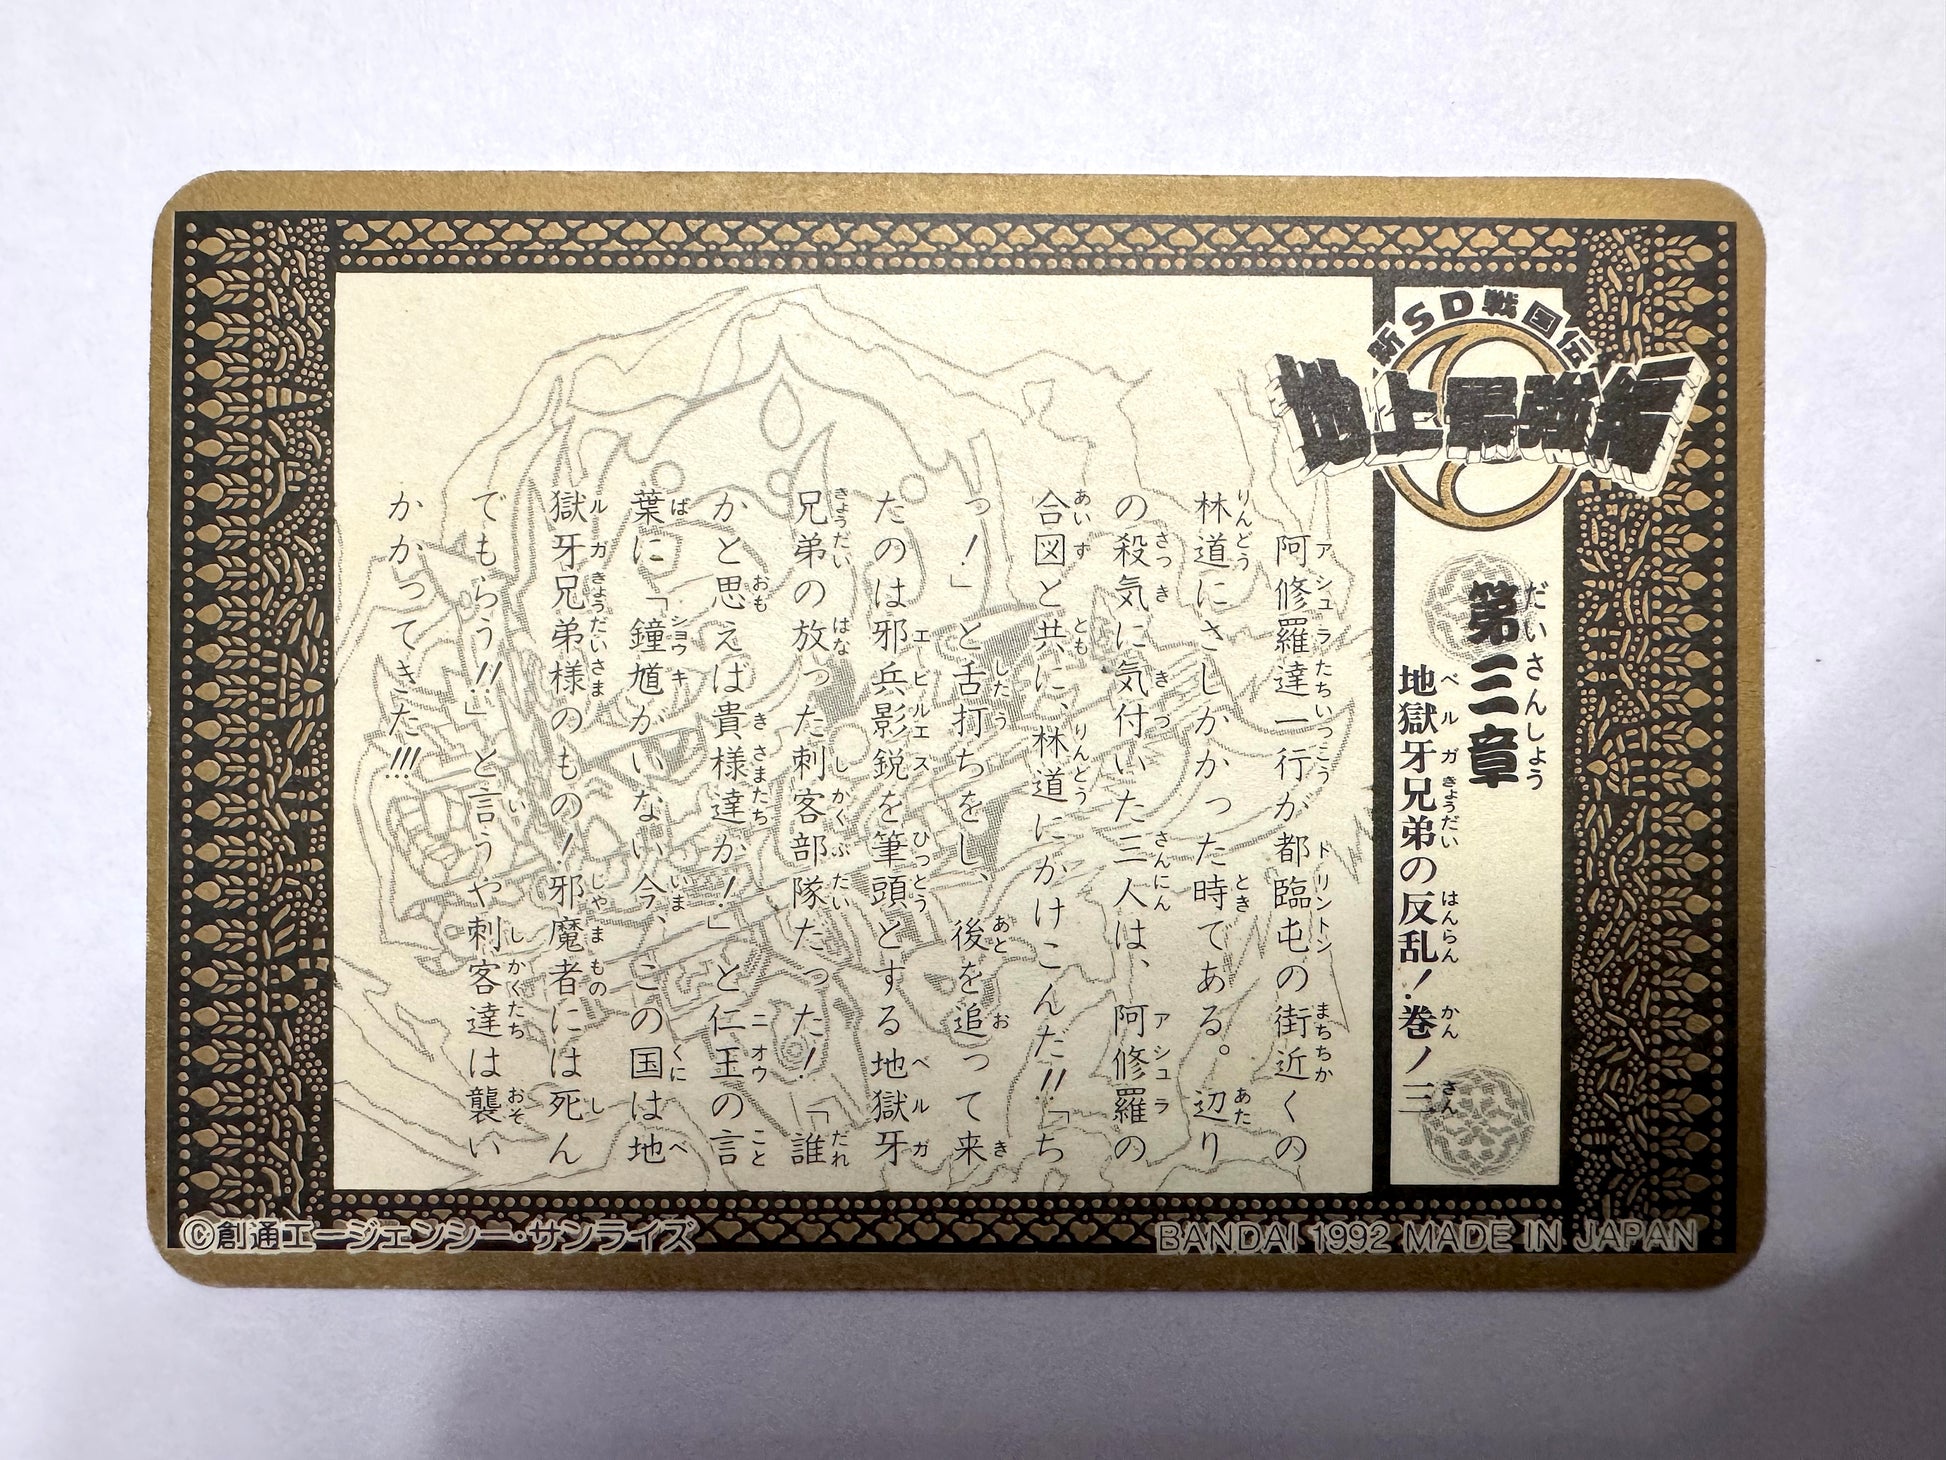 新SD戦国伝
地上最強編
第三章
地獄牙兄弟の反乱！巻ノ三
阿修羅達一行が都臨屯の街近くの
林道にさしかかった時である。辺り
の殺気に気付いた三人は、阿修羅の
合図と共に、林道にかけこんだ!!「ち
っ！」と舌打ちをし、後を追って来
たのは邪兵影鋭を筆頭とする地獄牙
兄弟の放った刺客部隊だった！「誰
かと思えば貴様達か！」と仁王の言
葉に「鐘馗がいない今、この国は地
獄牙兄弟様のもの！邪魔者には死ん
でもらう!!」と言うや刺客達は襲い
かかってきた!!!
©創通エージェンシー・サンライズ
BANDAI 1992 MADE IN JAPAN